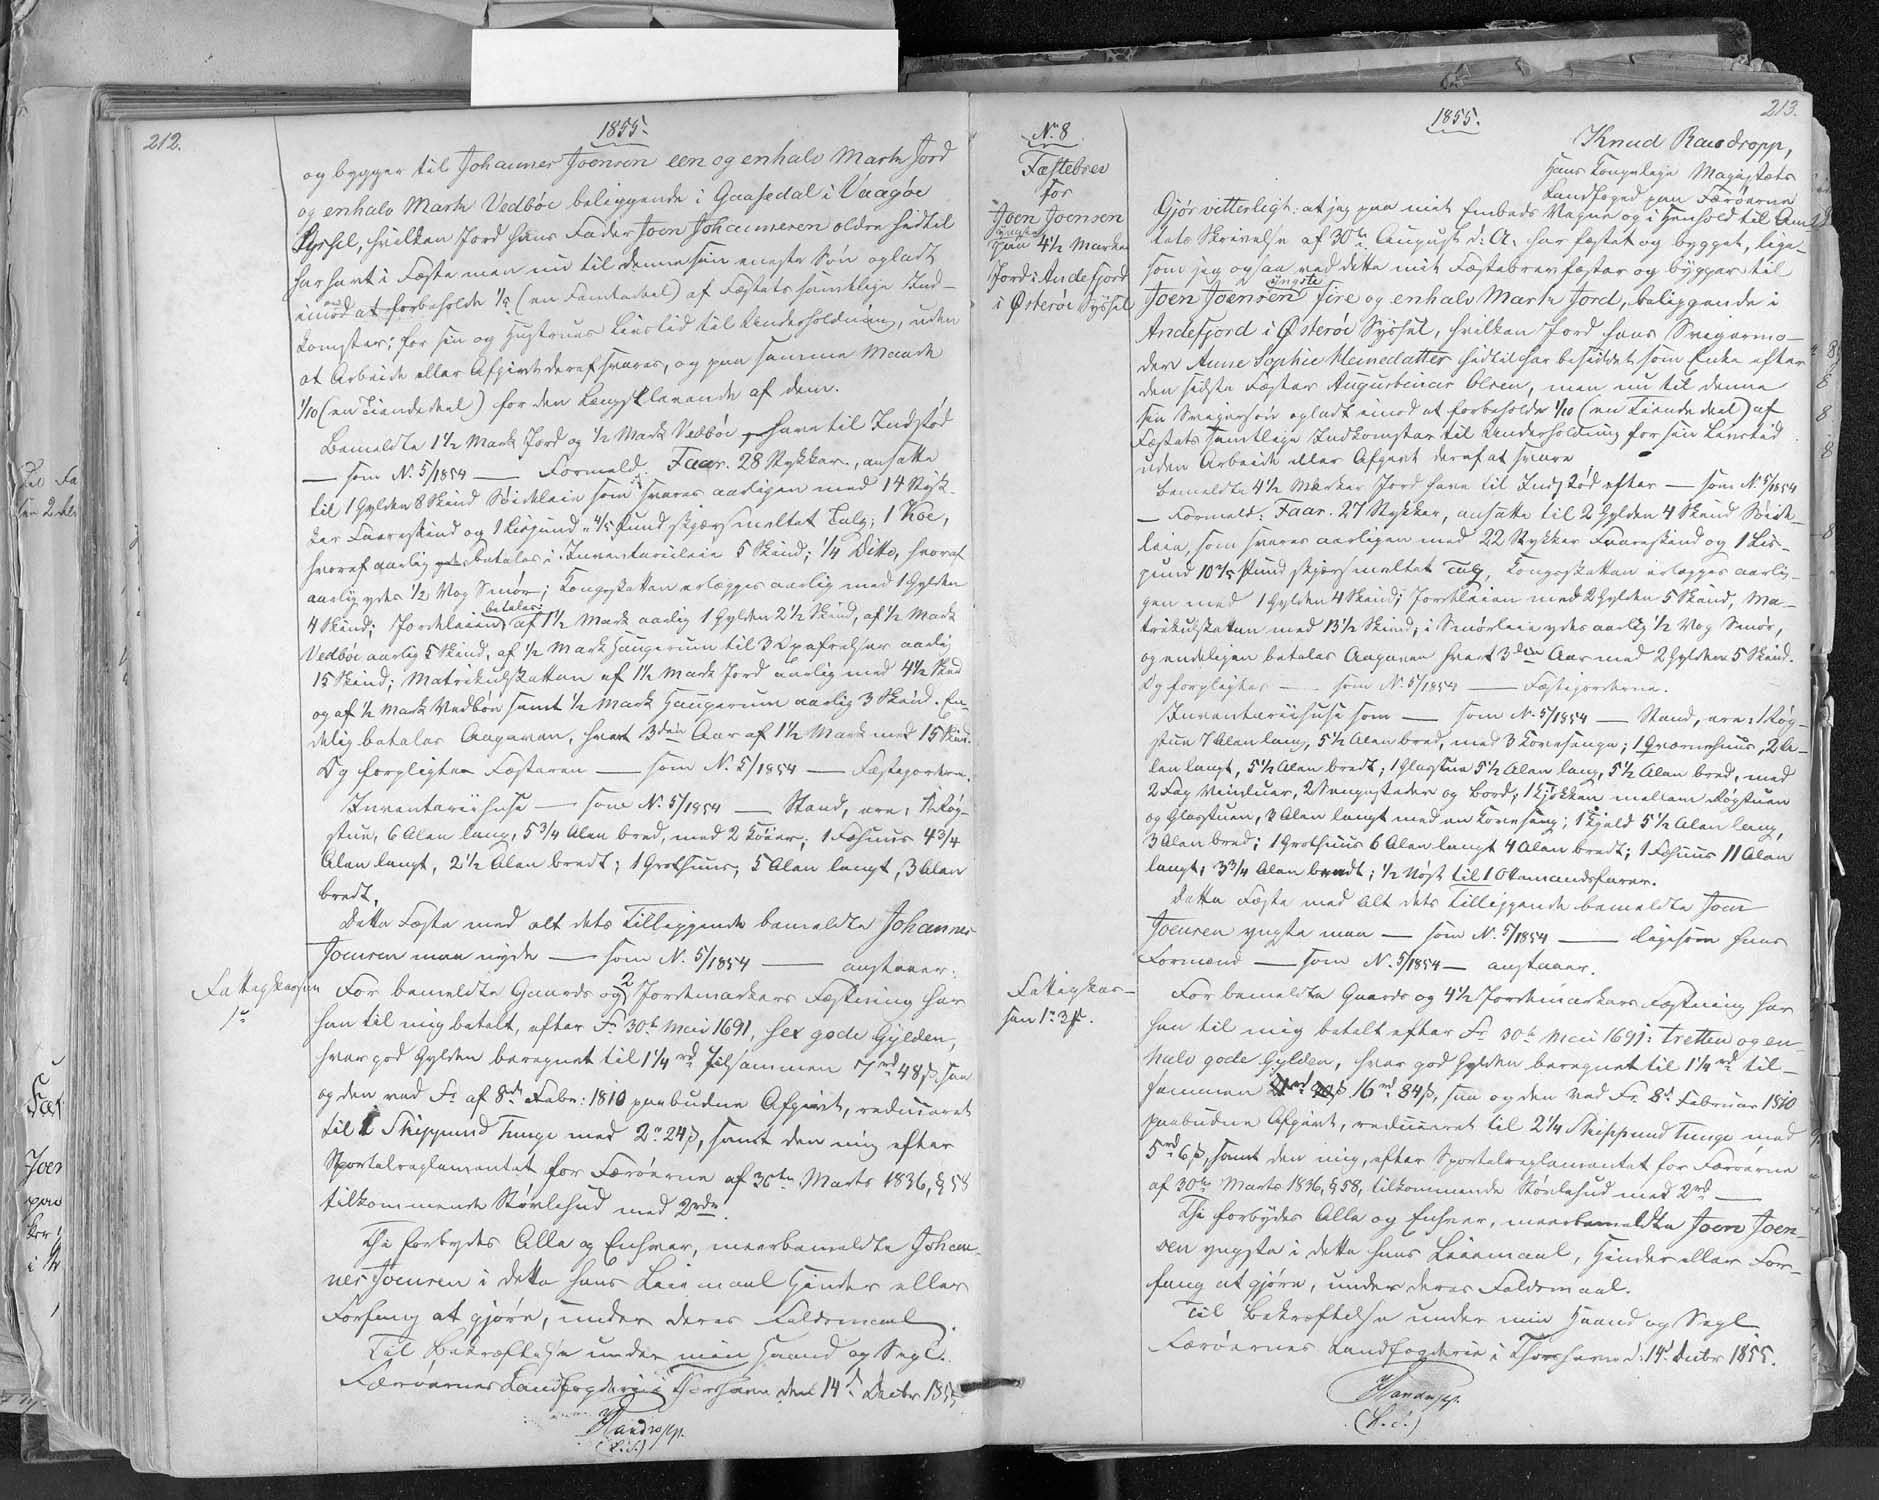 212.
1855.
og bygger til Johannes Joensen een og enhalv Mark Jord
og enhalv Mark Vedbøe beliggende i Gaasedal i Vaagøe
Syssel, hvilken Jord hans Fader Joen Johannesen ældre hidtil
har havt i Fæste men nu til denne sin eneste Søn opladt
imod at forbeholde 1/5 (en Femtedeel) af Fæstets samtlige Ind-
komster, for sin og Hustrues Livstid til Underholdning, uden
at Arbeide eller Afgivt deraf svares, og paa samme Maade
1/10 (en Tiendedeel) for den Længstlevende af dem.
Bemeldte 1½ Mark Jord og ½ Mark Vedbøe have til Indstød
— som No. 5/1854 — Formeld. Faar. 28 Stykker, ansatte
til 1 Gylden 8 Skind Søideleie som svares aarligen med 14 Styk-
ker Faareskind og 1 Lispund 4/5 Pund skjær smeltet Talg; 1 Koe,
hvoraf aarlig betales i Inventariileie 5 Skind; ¼ Ditto, hvoraf
aarlig ydes ½ Vog Smør; Kongsskatten erlægges aarlig med 1 Gylden
4 Skind; Jordeleien betales: af 1½ Mark aarlig 1 Gylden 2½ Skind, af ½ Mark
Vedbøe aarlig 5 Skind, af ½ Mark Haugerum til 3 aarlig
15 Skind; Matrikulskatten af 1½ Mark Jord aarlig med 4½ Skind
og af ½ Mark Vedbøe samt ½ Mark Haugerum aarlig 3 Skind. En-
delig betales Angaven, hvert 3die Aar af 1½ Mark med 15 Skind.
Og forpligter Fæsteren — som No. 5/1854 — Fæstejorderne.
Inventariihuse — som No. 5/1854 — Stand, ere: 1 Røg-
stue, 6 Alen lang, 5¾ Alen bred, med 2 Køier; 1 Fæhuus 4¾
Alen langt, 2½ Alen bredt; 1 Grothuus, 5 Alen langt, 3 Alen
bredt.
Dette Fæste med alt dets Tilliggende bemeldte Johannes
Joensen maa nyde — som No. 5/1854 — angaaer.
Fattigkassen
1
For bemeldte Gaards og 2 Jordemarkers Fæstning har
han til mig betalt, efter Fr. 30te Mai 1691, sex gode Gylden,
hver god Gylden beregnet til 1¼ rd tilsammen 7 rd 48 ß, saa
og den ved Fr. af 8de Febr: 1810 paabudne Afgivt, reduceret
til 1 Skippund Tunge med 2 24 ß, samt den mig efter
Sportelreglementet for Færøerne af 30te Marts 1836, § 58
tilkommende Støvlehud med 2 rd.
Thi forbydes Alle og Enhver, meerbemeldte Johan-
nes Joensen i dette hans Leiemaal Hinder eller
Forfang at gjøre, under deres Faldsmaal.
Til Bekræftelse under min Haand og Segl.
Færøernes Landfogderie i Thorshavn den 14d Decbr 1855
Randropp.
(L.S.)
213.
1855.
No. 8
Fæstebrev
for
Joen Joensen
yngste
paa 4½ Marker
Jord i Andefjord
i Østerøe Syssel
Knud Randropp,
Hans Kongelige Majestæts
Landfoged paa Færøerne
Gjør vitterligt: at jeg paa mit Embeds Vegne og i Henhold til Am-
tets Skrivelse af 30te August d: A: har fæstet og bygget, lige-
som jeg ogsaa ved dette mit Fæstebrev fæster og bygger til
Joen Joensen yngste fire og enhalv Mark Jord, beliggende i
Andefjord i Østerøe Syssel, hvilken Jord hans Svigermo-
der Anne Sophie Heinedatter hidtil har besiddet som Enke efter
den sidste Fæster Augustinus Olsen, men nu til denne
sin Svigersøn opladt imod at forbeholde 1/10 (en Tiendedeel) af
Fæstets samtlige Indkomster til Underholdning for sin Levetid
uden Arbeide eller Afgivt deraf at svare
Bemeldte 4½ Marker Jord have til Indstød efter — som No. 5/1854
— Formeld: Faar. 27 Stykker, ansatte til 2 Gylden 4 Skind Søide-
leie, som svares aarligen med 22 Stykker Faareskind og 1 Lis-
pund 10 2/5 Pund skjær smeltet Talg, Kongsskatten erlægges aarli-
gen med 1 Gylden 4 Skind; Jordeleien med 2 Gylden 5 Skind, Ma-
trikulskatten med 13½ Skind; i Smørleie ydes aarlig ½ Vog Smør,
og endeligen betales Angaven hvert 3die Aar med 2 Gylden 5 Skind.
Og forpligtes — som No. 5/1854 — Fæstejorderne.
Inventariihuse som — som No. 5/1854 — Stand, ere: 1 Røg-
stue 7 Alen lang, 5½ Alen bred, med 3 Kovesenge; 1 Qværnehuus, 2 A-
len langt, 5½ Alen bredt; 1 Glasstue 5½ Alen lang, 5½ Alen bred, med
2 Fag Vinduer, 2 Sengesteder og Bord; 1 Kjøkken mellem Røgstuen
og Glasstuen, 3 Alen langt med en Koveseng; 1 Hjald 5½ Alen lang,
3 Alen bred; 1 Grothuus 6 Alen langt 4 Alen bredt; 1 Fæhuus 11 Alen
langt, 3¾ Alen bredt; ½ Nøst til 1 Ottemandsfarer.
Dette Fæste med alt dets Tilliggende bemeldte Joen
Joensen yngste maa — som No. 5/1854 — ligesom hans
Formænd — som No. 5/1854 — angaaer.
Fattigkas-
sen 1 3 ß.
For bemeldte Gaards og 4½ Jordemarkers Fæstning har
han til mig betalt efter Fr. 30te Mai 1691: tretten og en-
halv gode Gylden, hver god Gylden beregnet til 1¼ rd til-
sammen 16 rd 84 ß, saa og den ved Fr. 8d Februar 1810
paabudne Afgivt, reduceret til 2¼ Skippund Tunge med
5 rd 6 ß, samt den mig, efter Sportelreglementet for Færøerne
af 30te Marts 1836, § 58, tilkommende Støvlehud med 2 rd —
Thi forbydes Alle og Enhver, meerbemeldte Joen Joen-
sen yngste i dette hans Leiemaal, Hinder eller For-
fang at gjøre, under deres Faldsmaal.
Til Bekræftelse under min Haand og Segl
Færøernes Landfogderie i Thorshavn d: 14d Decbr 1855.
Randropp.
(L.S.)